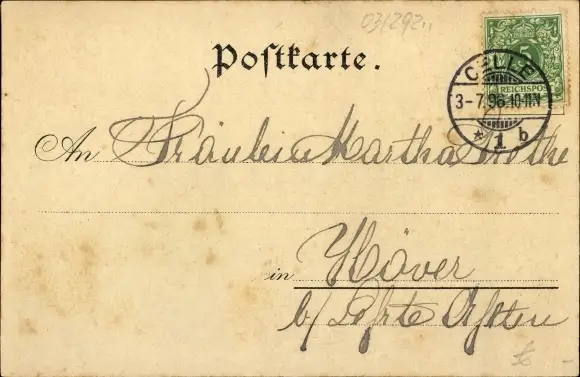 03/292
Postkarte.
5
REICHSPOST
CELLE
3-7.96.10-11.V
* 1 b
An Fräulein Martha
in Höver
b/ Lehrte